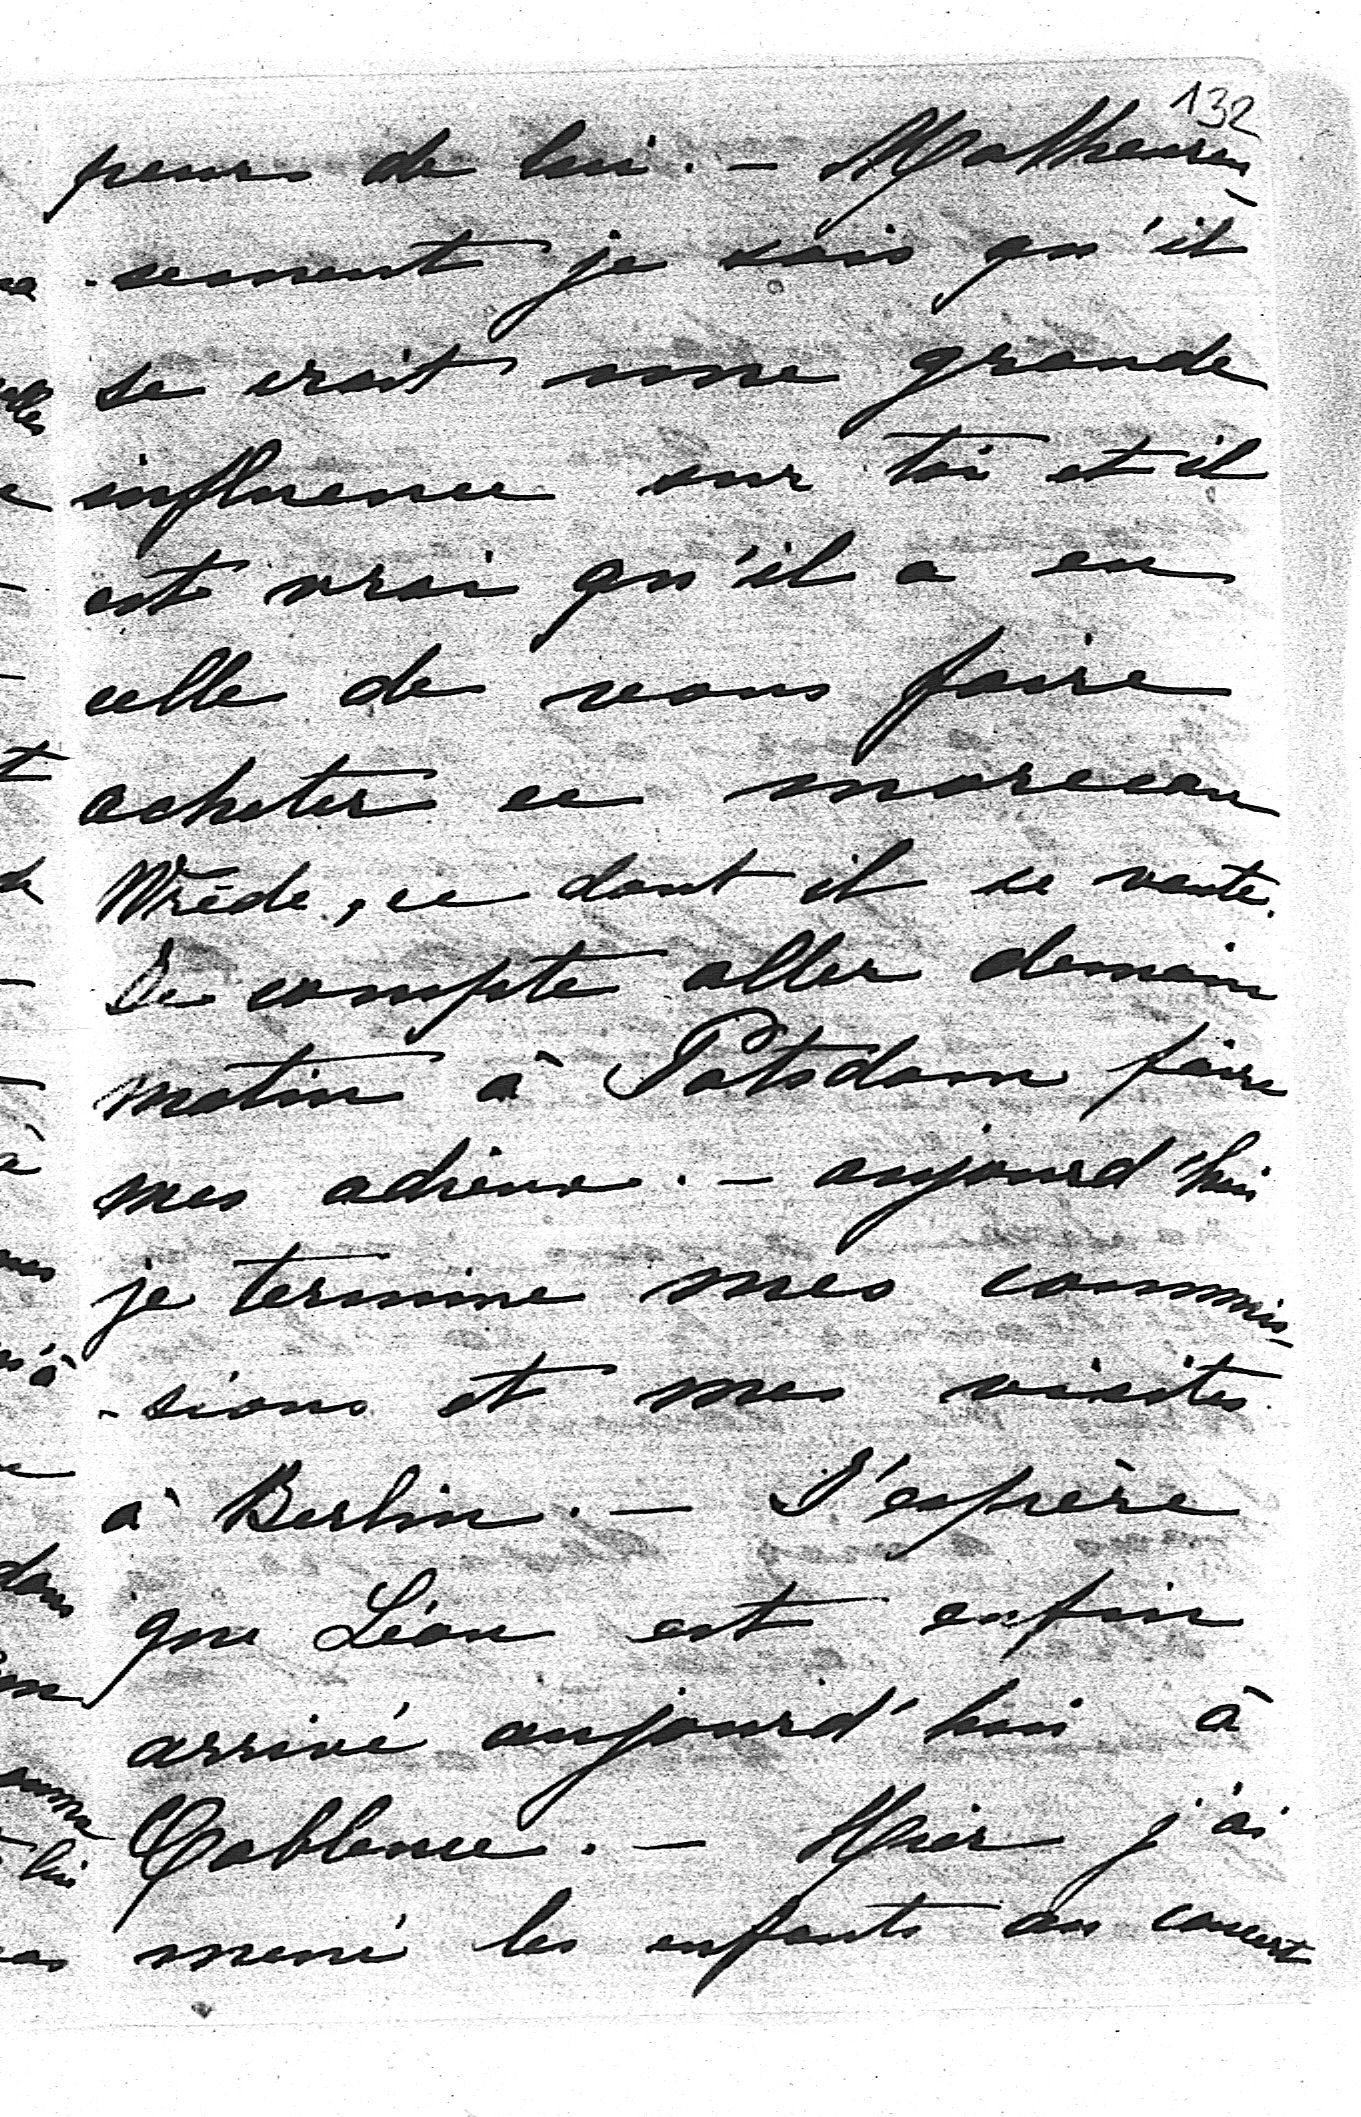 132
peur de lui. – Malheureu-
-sement je sais qu'il
se croit une grande
influence sur toi et il
est vrai qu'il a eu
celle de vous faire
acheter ce morceau
Wrede, ce dont il se vante.
Je compte aller demain
matin à Potsdam faire
mes adieux. – aujourd'hui
je termine mes commis-
-sions et mes visites
à Berlin. – J'espère
que Léon est enfin
arrivé aujourd'hui à
Coblence. – Hier j'ai
mené les enfants au concert